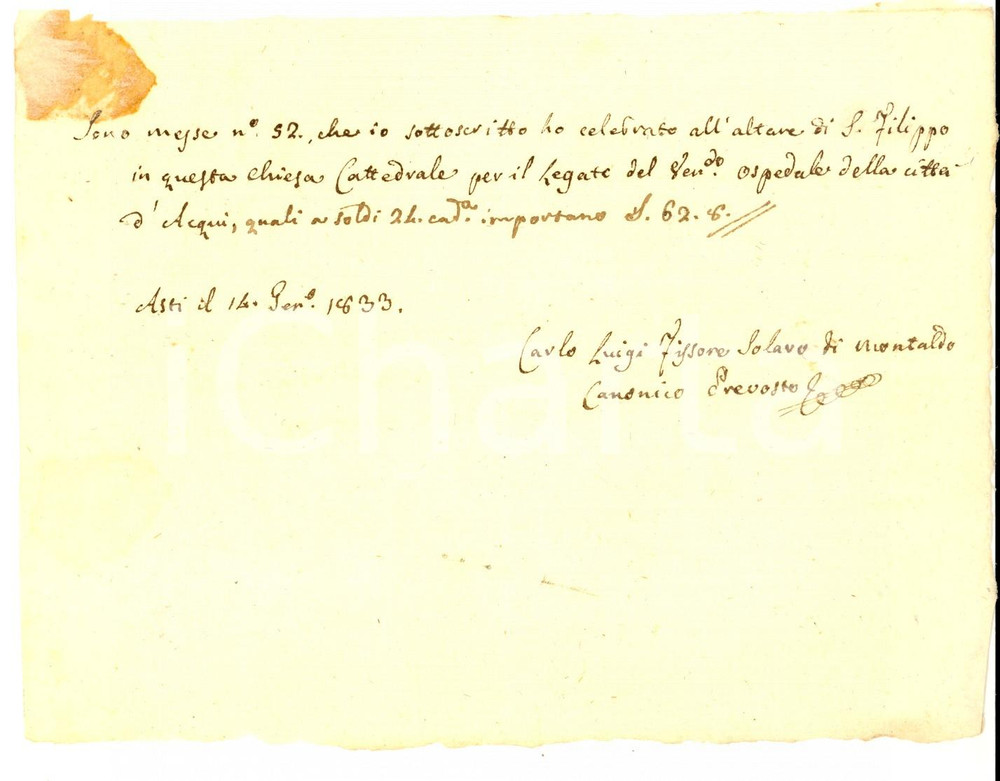 Sono messe n.° 52., che io sottoscritto ho celebrato all'altare di S. Filippo
in questa Chiesa Cattedrale per il Legato del Ven.do Ospedale della città
d'Acqui, quali a soldi 24. cad.a importano £. 62. 8.
Asti il 14. Gen.o 1833.
Carlo Luigi Fissore Solaro di Montaldo
Canonico Prevosto
iCharta